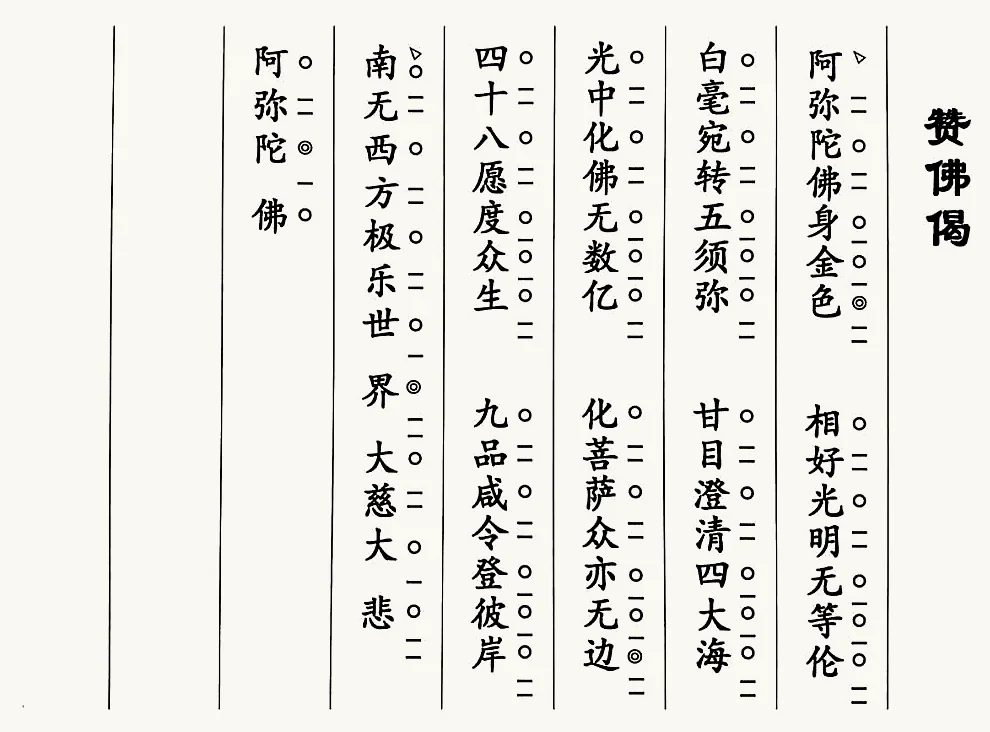 赞佛偈
阿弥陀佛身金色 相好光明无等伦
白毫宛转五须弥 甘目澄清四大海
光中化佛无数亿 化菩萨众亦无边
四十八愿度众生 九品咸令登彼岸
南无西方极乐世界 大慈大悲
阿弥陀佛